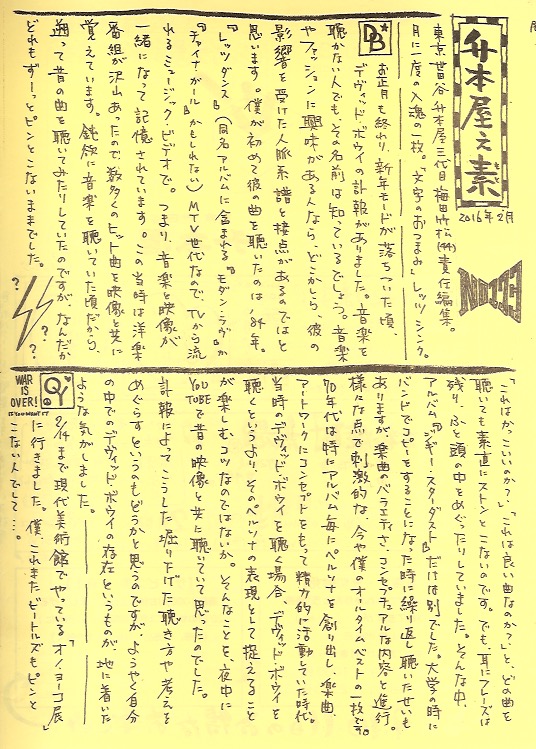 升本屋之素
2016年2月
No.123
東京世田谷 升本屋三代目 梅田竹松(44)責任編集。
月に一度の入魂の一枚。「文字のおつまみ」レッツ シンク。
DB
お正月も終わり、新年モードが落ちついた頃、
デヴィッド・ボウイの訃報がありました。音楽を
聴かない人でも、その名前は知っているでしょう。音楽
やファッションに興味がある人なら、どこかしら、彼の
影響を受けた人脈系譜と接点があるのではと
思います。僕が初めて彼の曲を聴いたのは84年。
『レッツダンス』(同名アルバムに含まれる『モダン・ラヴ』か
『チャイナガール』かもしれない)MTV世代なので、TVから流
れるミュージック・ビデオで。つまり、音楽と映像が
一緒になって記憶されています。この当時は洋楽
番組が沢山あったので、数多くのヒット曲を映像と共に
覚えています。純粋に音楽を聴いていた頃だから、
遡って昔の曲を聴いてみたりしていたのですが、なんだか
どれもずーっとピンとこないままでした。
? ? ?
「これはかっこいいのか?」「これは良い曲なのか?」と、どの曲を
聴いても素直にストンとこないのです。でも、耳にフレーズは
残り、ふと頭の中をめぐったりしていました。そんな中、
アルバム『ジギー・スターダスト』だけは別でした。大学の時に
バンドでコピーをすることになった時に繰り返し聴いたせいも
ありますが、楽曲のバラエティさ、コンセプチュアルな内容と進行。
様々な点で刺激的な、今や僕のオールタイムベストの一枚です。
70年代は特にアルバム毎にペルソナを創り出し、楽曲、
アートワークにコンセプトをもって精力的に活動していた時代。
当時のデヴィッド・ボウイを聴く場合、デヴィッド・ボウイを
聴くというより、そのペルソナの表現として捉えること
が楽しむコツなのではないか。そんなことを、夜中に
YOUTUBEで昔の映像と共に聴いていて思ったのでした。
訃報によってこうした掘り下げた聴き方や考えを
めぐらすというのもどうかと思うのですが、ようやく自分
の中でのデヴィッド・ボウイの存在というものが、地に着いた
ような気がしました。
OY
WAR IS OVER!
IF YOU WANT IT
2/14まで現代美術館でやっている「オノ・ヨーコ展」
に行きました。僕、これまたビートルズもピンと
こない人でして…。